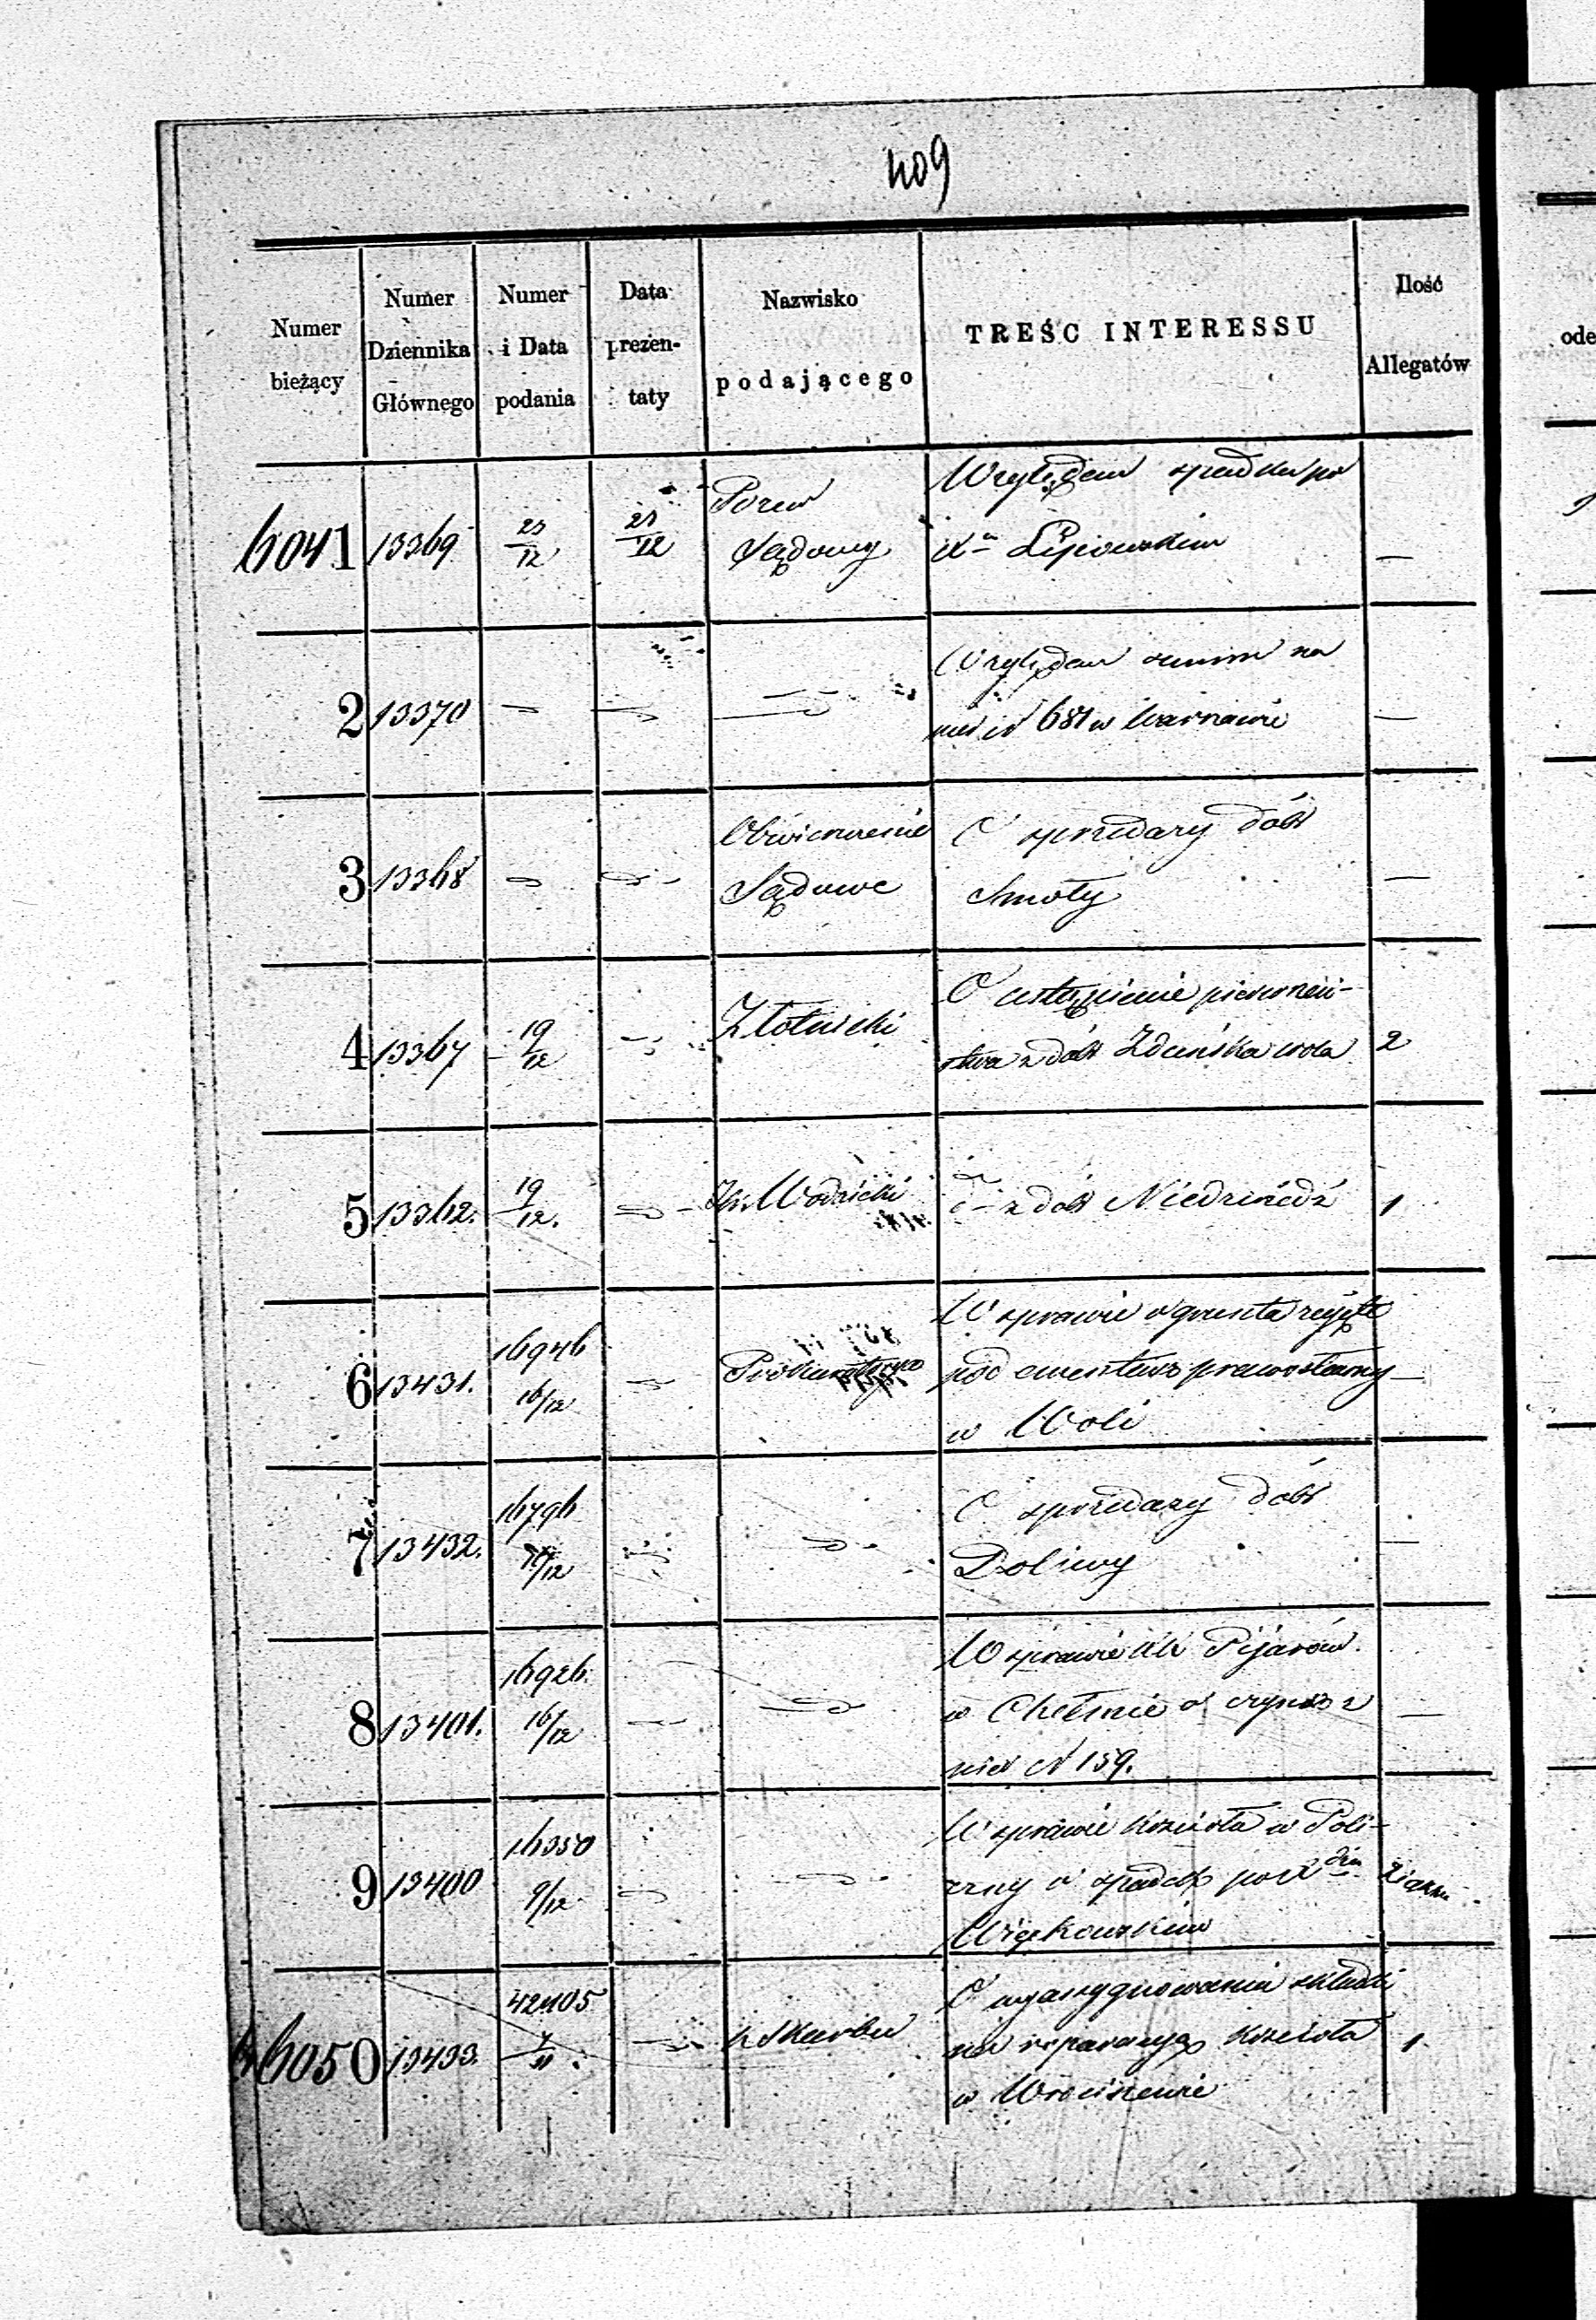 409
Numer bieżący
Numer Dziennika Głównego
Numer i Data podania
Data prezentaty
Nazwisko podającego
TREŚC INTERESSU
Ilość Allegatów
6041 13369 23/12 23/12 Pozew Względem spadku po
Sądowy Xu Lipowskim —
2 13370 Względem summ na
nier N 681 w Warszawie —
3 13368 Obwieszczenie O sprzedaży dóbr
Sądowe Smoły —
4 13367 19/12 Złotnicki O ustąpienie pierwszeń-
stwa z dóbr Zduńska wola 2
5 13362. 19/12. Wodzicki z dóbr Niedźwiedź 1
6 13431. 16946 16/12 Prokuratorya W sprawie o grunta zajęte
pod cmentarz prawosławny —
w Woli
7 13432. 16796 /12 O sprzedaży dóbr
Doliwy —
8 13401. 16926. 16/12 W sprawie XX Pijarów
w Chełmie o czynsz z —
nier N 159.
9 13400 16350 9/12 W sprawie Kościoła w Poli-
czny o spadek po X
Więckowskim
6050 13433. 42405 K Skarbu O wyassygnowania składki
na reparacyą Kościoła 1.
w Wrociszewie